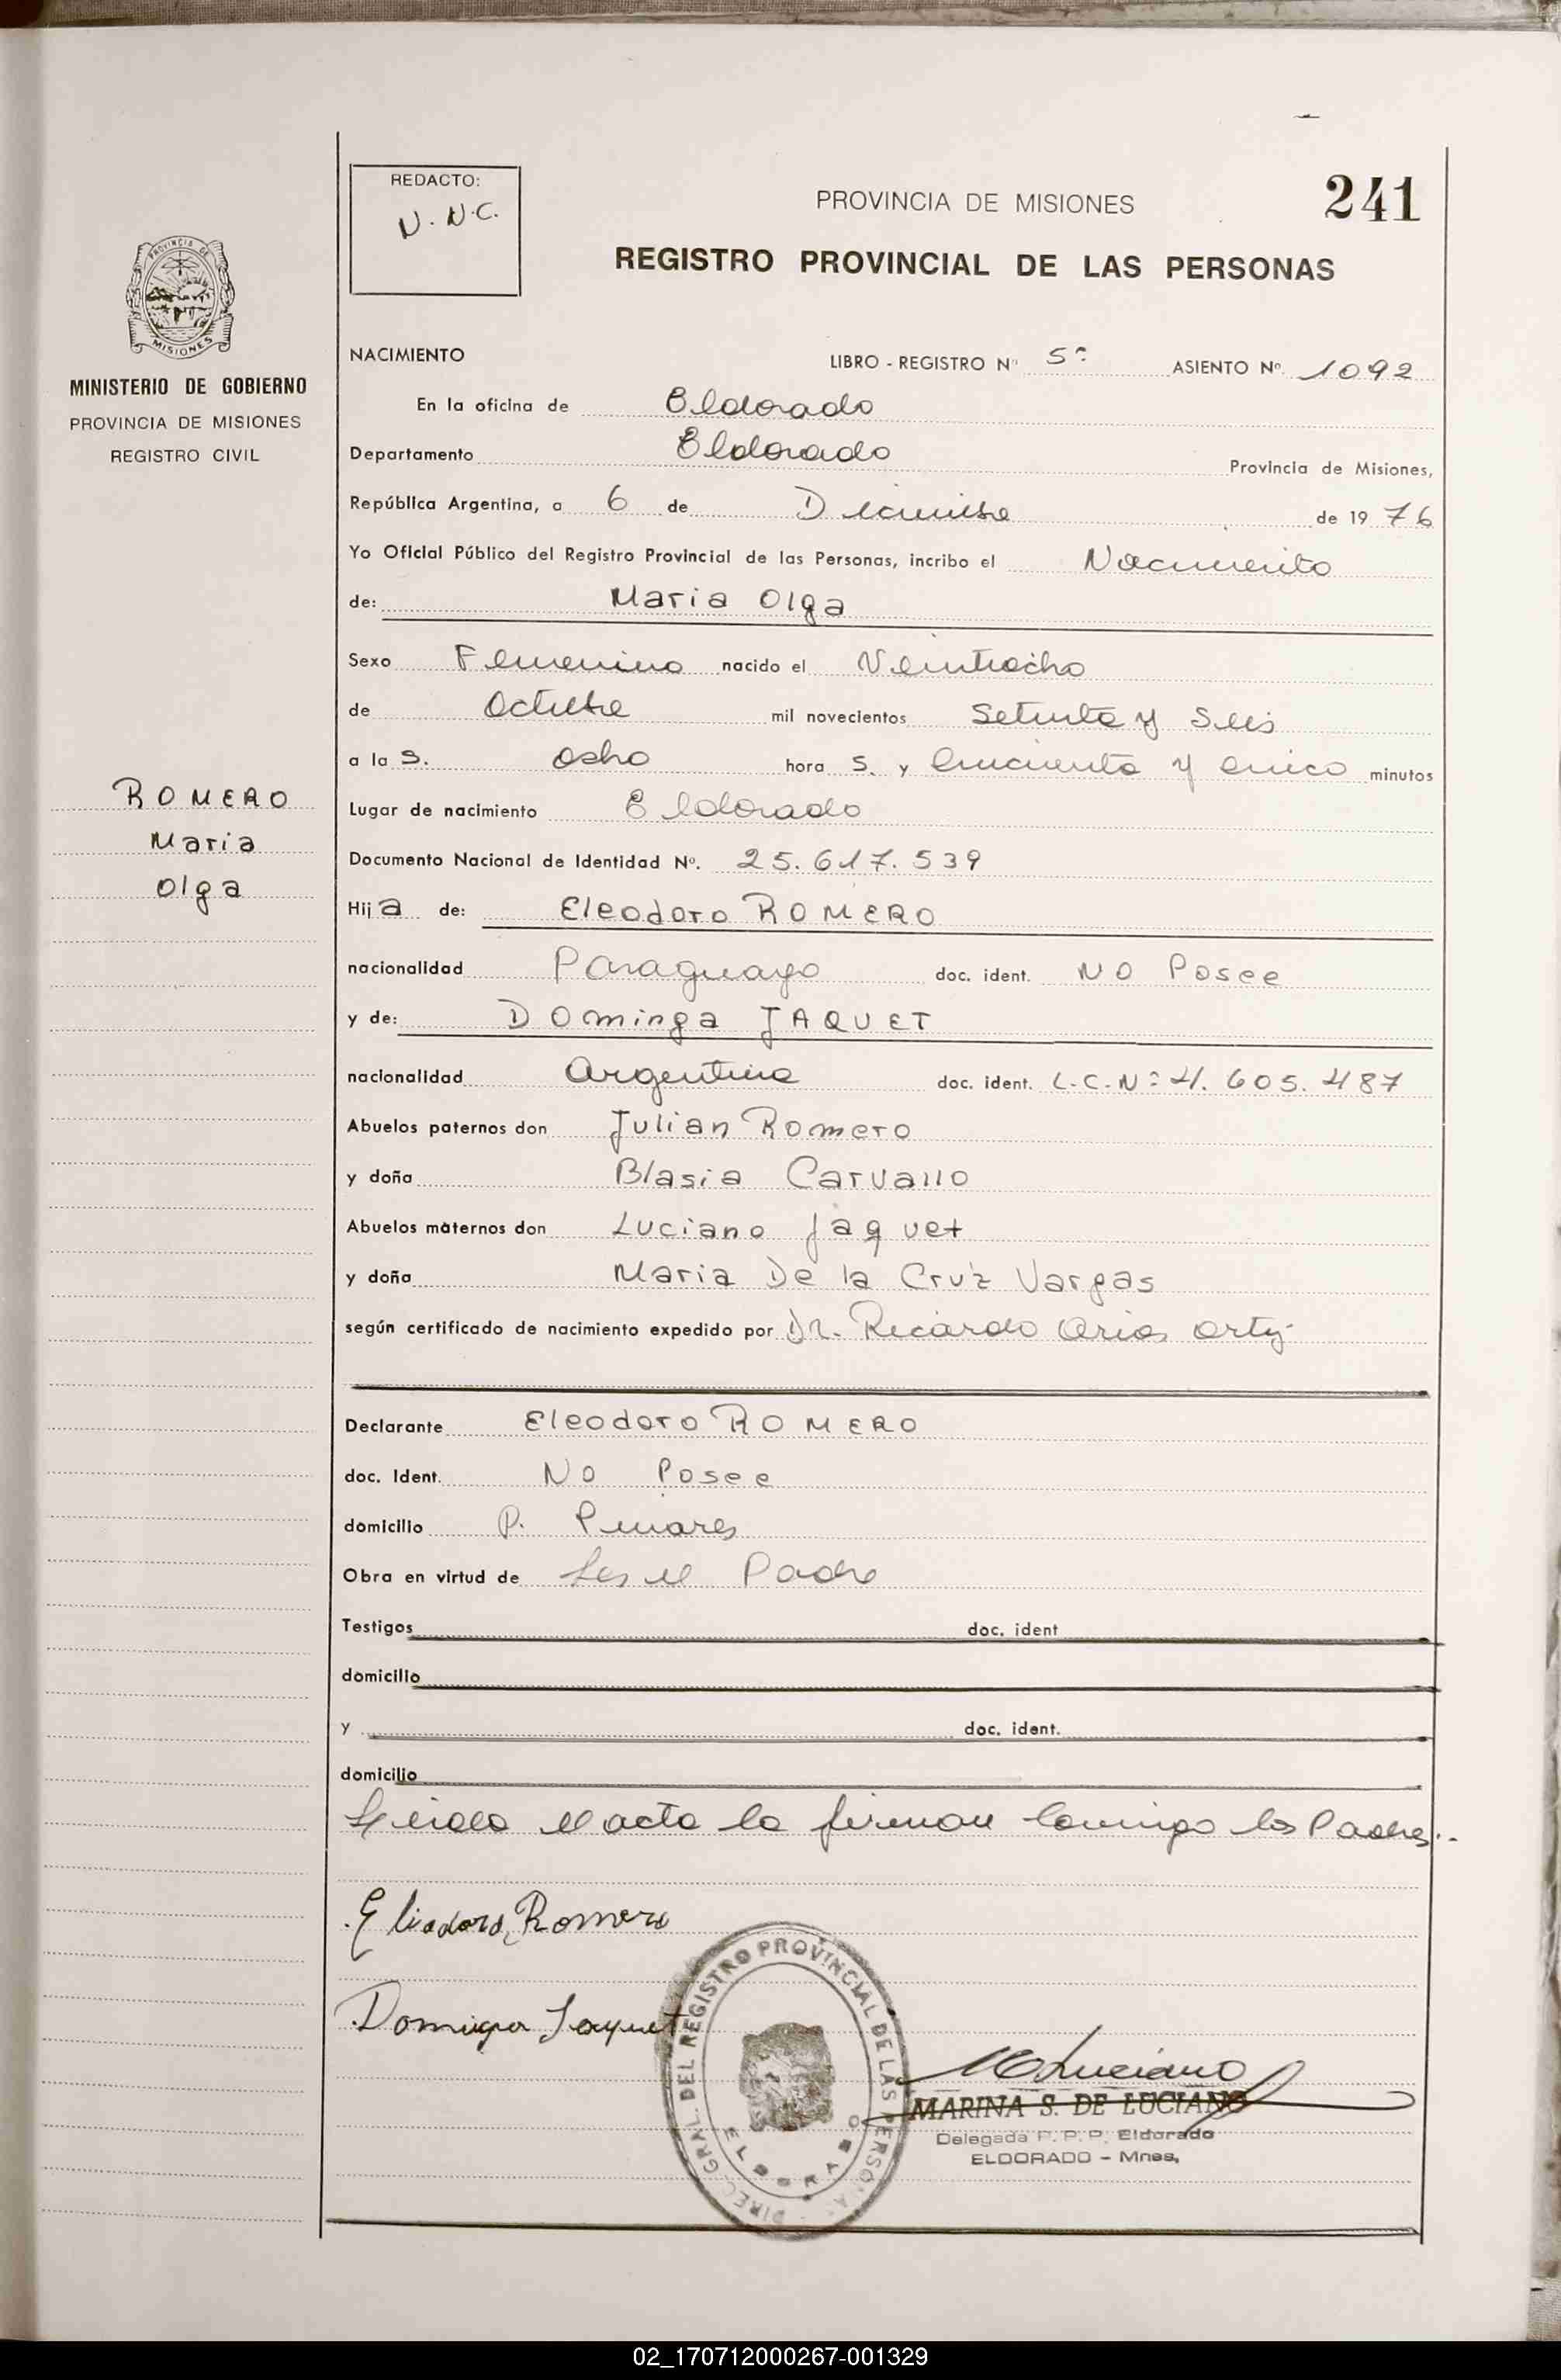 REDACTO:
N.N.C.
PROVINCIA DE MISIONES
241
REGISTRO PROVINCIAL DE LAS PERSONAS
PROVINCIA DE
MISIONES
MINISTERIO DE GOBIERNO
PROVINCIA DE MISIONES
REGISTRO CIVIL
ROMERO
Maria
Olga
NACIMIENTO
LIBRO - REGISTRO Nº 5º ASIENTO Nº 1092
En la oficina de Eldorado
Departamento Eldorado Provincia de Misiones,
República Argentina, a 6 de Diciembre de 1976
Yo Oficial Público del Registro Provincial de las Personas, incribo el Nacimiento
de: Maria Olga
Sexo Femenino nacido el Veintiocho
de Octubre mil novecientos Setenta y Seis
a la s. Ocho hora s. y Cincuenta y cinco minutos
Lugar de nacimiento Eldorado
Documento Nacional de Identidad Nº. 25.617.539
Hija de: Eleodoro ROMERO
nacionalidad Paraguayo doc. ident. No Posee
y de: Dominga JAQUET
nacionalidad Argentina doc. ident. L.C.Nº 4.605.487
Abuelos paternos don Julian Romero
y doña Blasia Carvallo
Abuelos maternos don Luciano Jaquet
y doña Maria De la Cruz Vargas
según certificado de nacimiento expedido por Dr. Ricardo Arias Ortiz
Declarante Eleodoro ROMERO
doc. Ident. No Posee
domicilio P. Pinares
Obra en virtud de Ser el Padre
Testigos doc. ident
domicilio
y doc. ident.
domicilio
Leida el acta la firman conmigo los Padres.-
Eliodoro Romero
Dominga Jaquet
DIREC. GRAL. DEL REGISTRO PROVINCIAL DE LAS PERSONAS
ELDORADO
MSLuciano
MARINA S. DE LUCIANO
Delegada R. P. P. Eldorado
ELDORADO - Mnes.
02_170712000267-001329